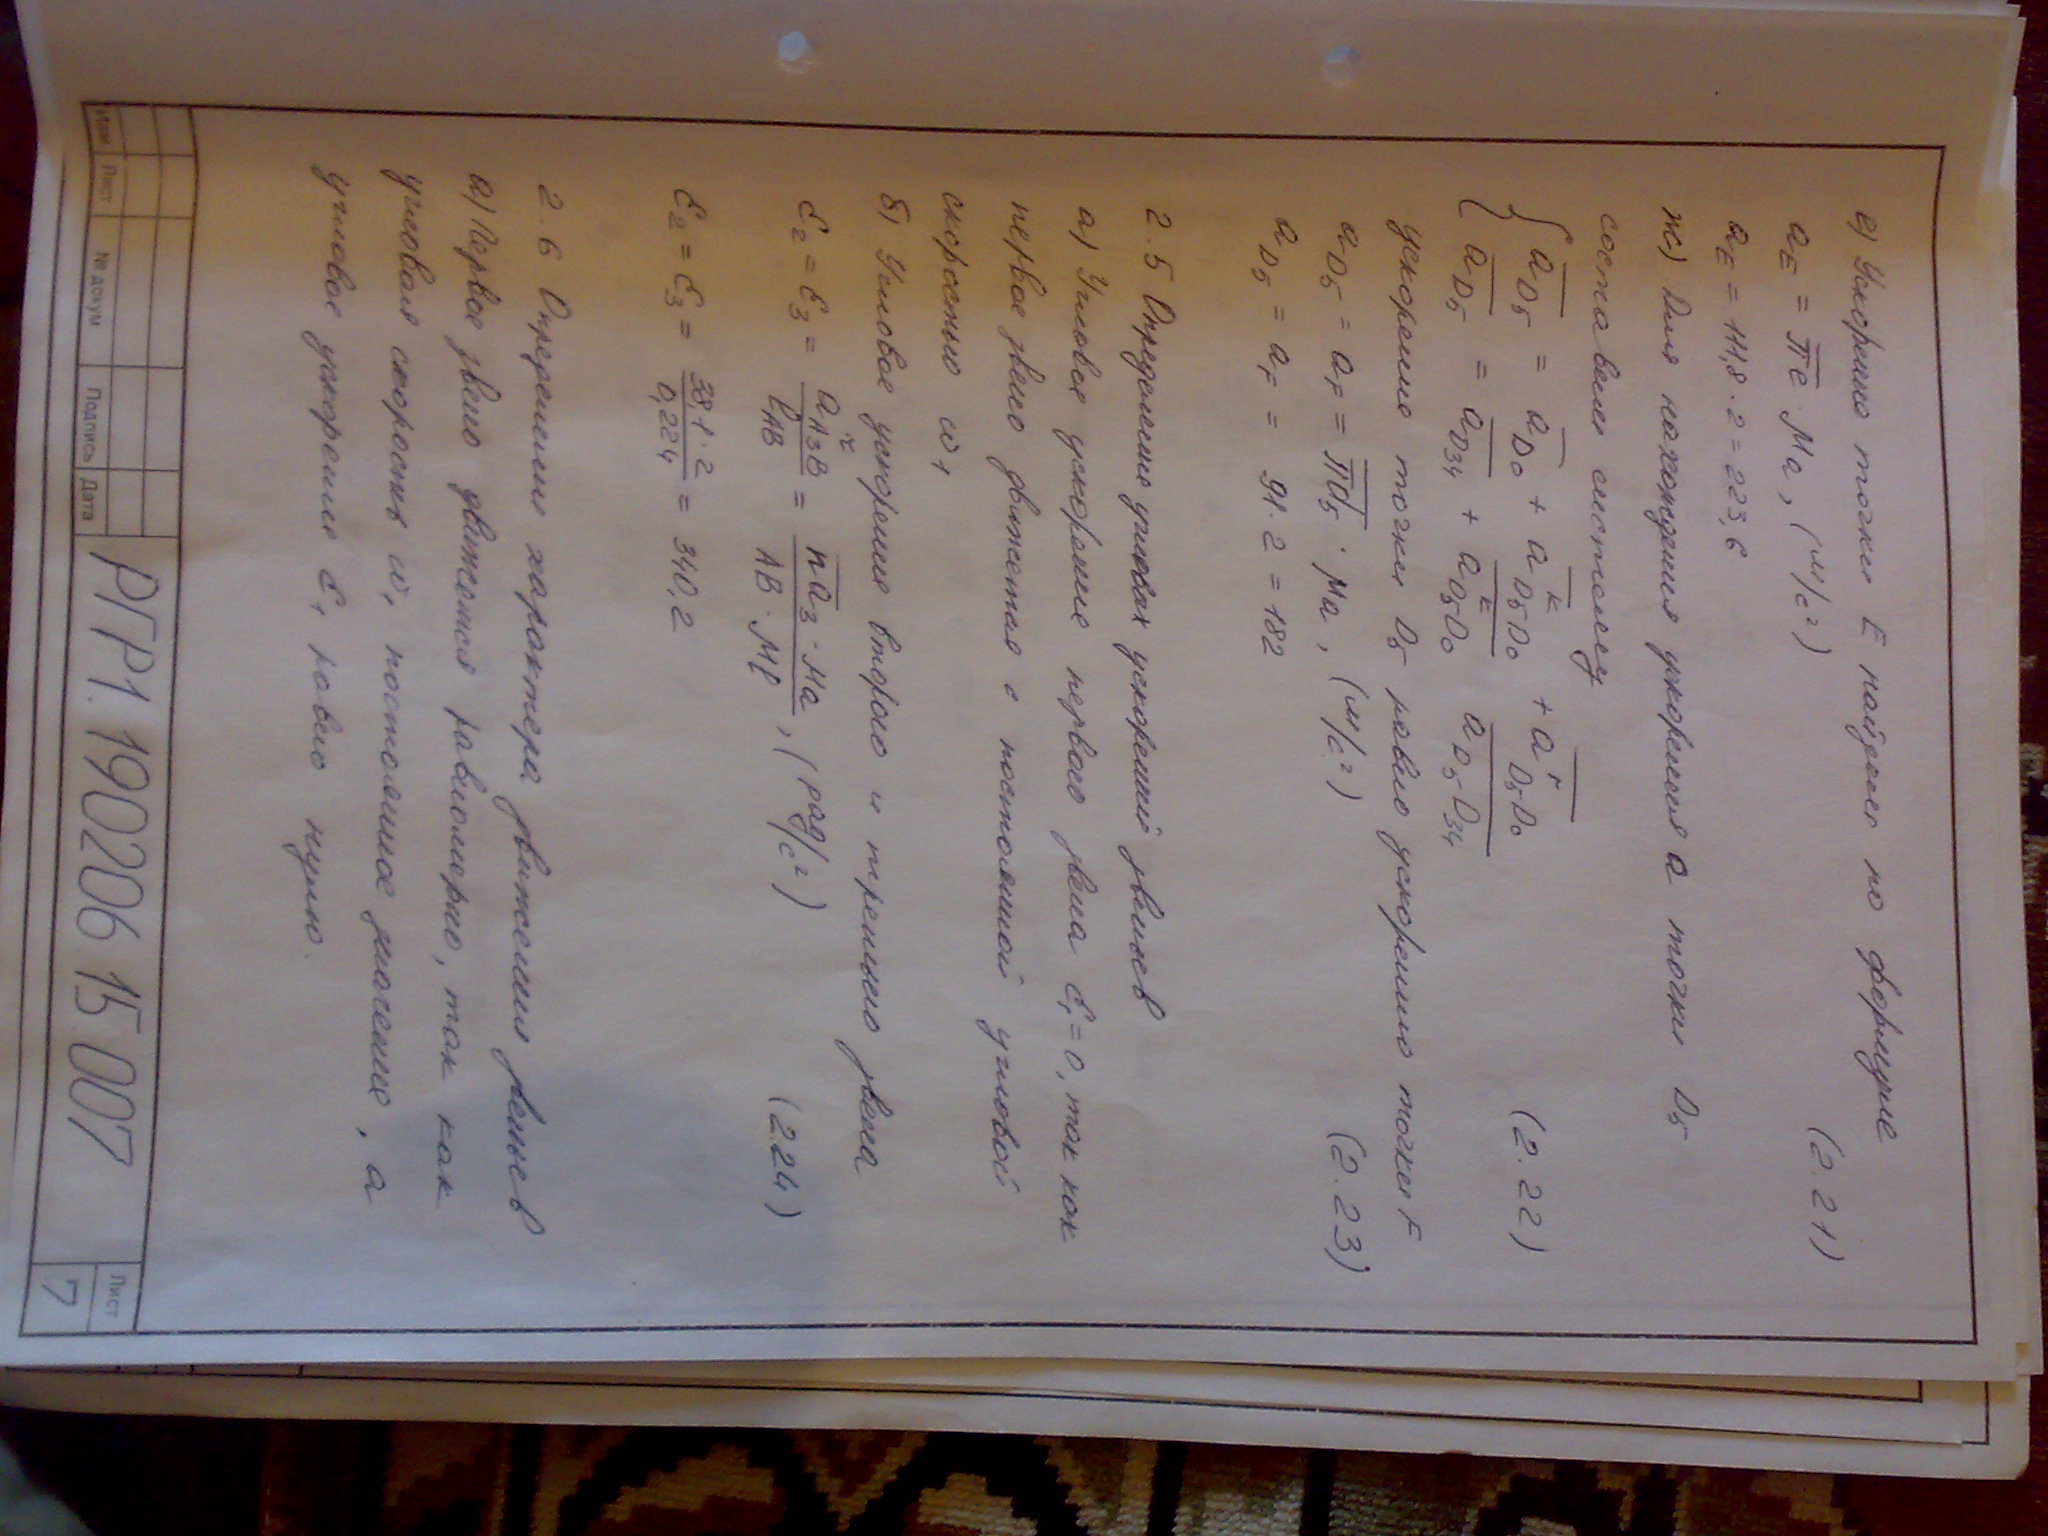 е) Ускорение точки E найдем по формуле
aE = πe · Ma , (м/с²) (2.21)
aE = 111,8 · 2 = 223,6
ж) Для нахождения ускорения a точки D5
составим систему
{ aD5 = aD0 + a^k D5D0 + a^r D5D0
{ aD5 = aD34 + a^k D5D0 aD5D34 (2.22)
ускорение точки D5 равно ускорению точки F
aD5 = aF = πd5 · Ma , (м/с²) (2.23)
aD5 = aF = 91 · 2 = 182
2.5 Определение угловых ускорений звеньев
а) Угловое ускорение первого звена ε1 = 0, так как
первое звено движется с постоянной угловой
скоростью ω1
б) Угловое ускорение второго и третьего звена
ε2 = ε3 = a^τ A3B / ℓAB = na3 · Ma / AB · Mℓ , (рад/с²) (2.24)
ε2 = ε3 = 38,1 · 2 / 0,224 = 340,2
2.6 Определение характера движения звеньев
а) Первое звено движется равномерно, так как
угловая скорость ω1 постоянное значение, а
угловое ускорение ε1 равно нулю.
Изм Лист № докум Подпись Дата
РГР1. 190206. 15 007
Лист
7